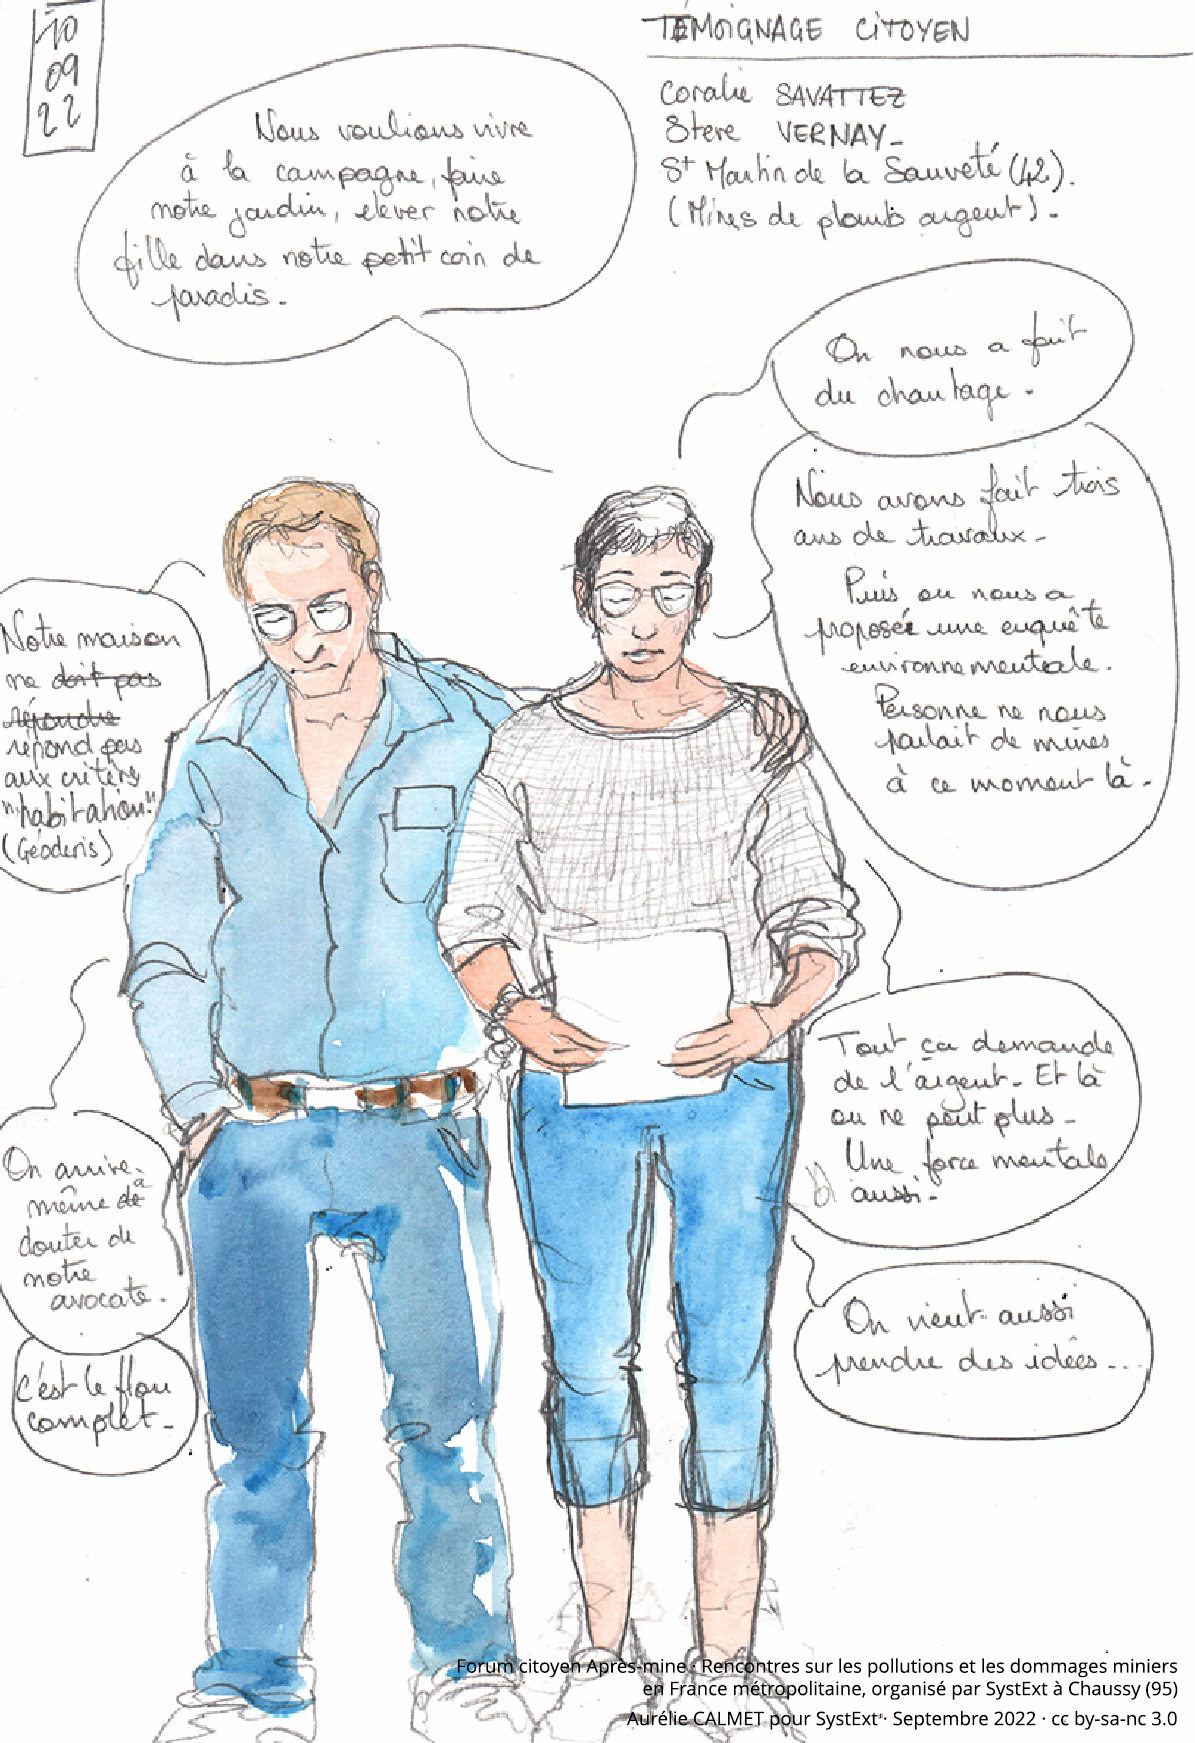 10
09
22
TÉMOIGNAGE CITOYEN
Coralie SAVATTEZ
Steve VERNAY_
St Martin de la Sauveté (42).
(Mines de plomb argent).
Nous voulions vivre
à la campagne, faire
notre jardin, élever notre
fille dans notre petit coin de
paradis.
On nous a fait
du chaulage.
Nous avons fait trois
ans de travaux.
Puis on nous a
proposé une enquête
environnementale.
Personne ne nous
parlait de mines
à ce moment là.
Notre maison
ne doit pas
répondre
répond pas
aux critères
habitation!!
(Géodéris)
Tout ça demande
de l'argent. Et là
on ne peut plus.
Une force mentale
aussi.
On arrive
même à
douter de
notre
avocate.
C'est le flou
complet.
On vient aussi
prendre des idées...
Forum citoyen Après-mine · Rencontres sur les pollutions et les dommages miniers
en France métropolitaine, organisé par SystExt à Chaussy (95)
Aurélie CALMET pour SystExt · Septembre 2022 · cc by-sa-nc 3.0